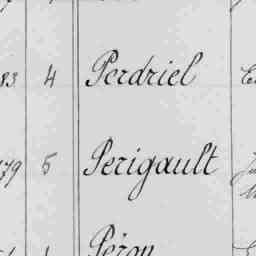 83 4 Perdriel
179 5 Perigault
Péron